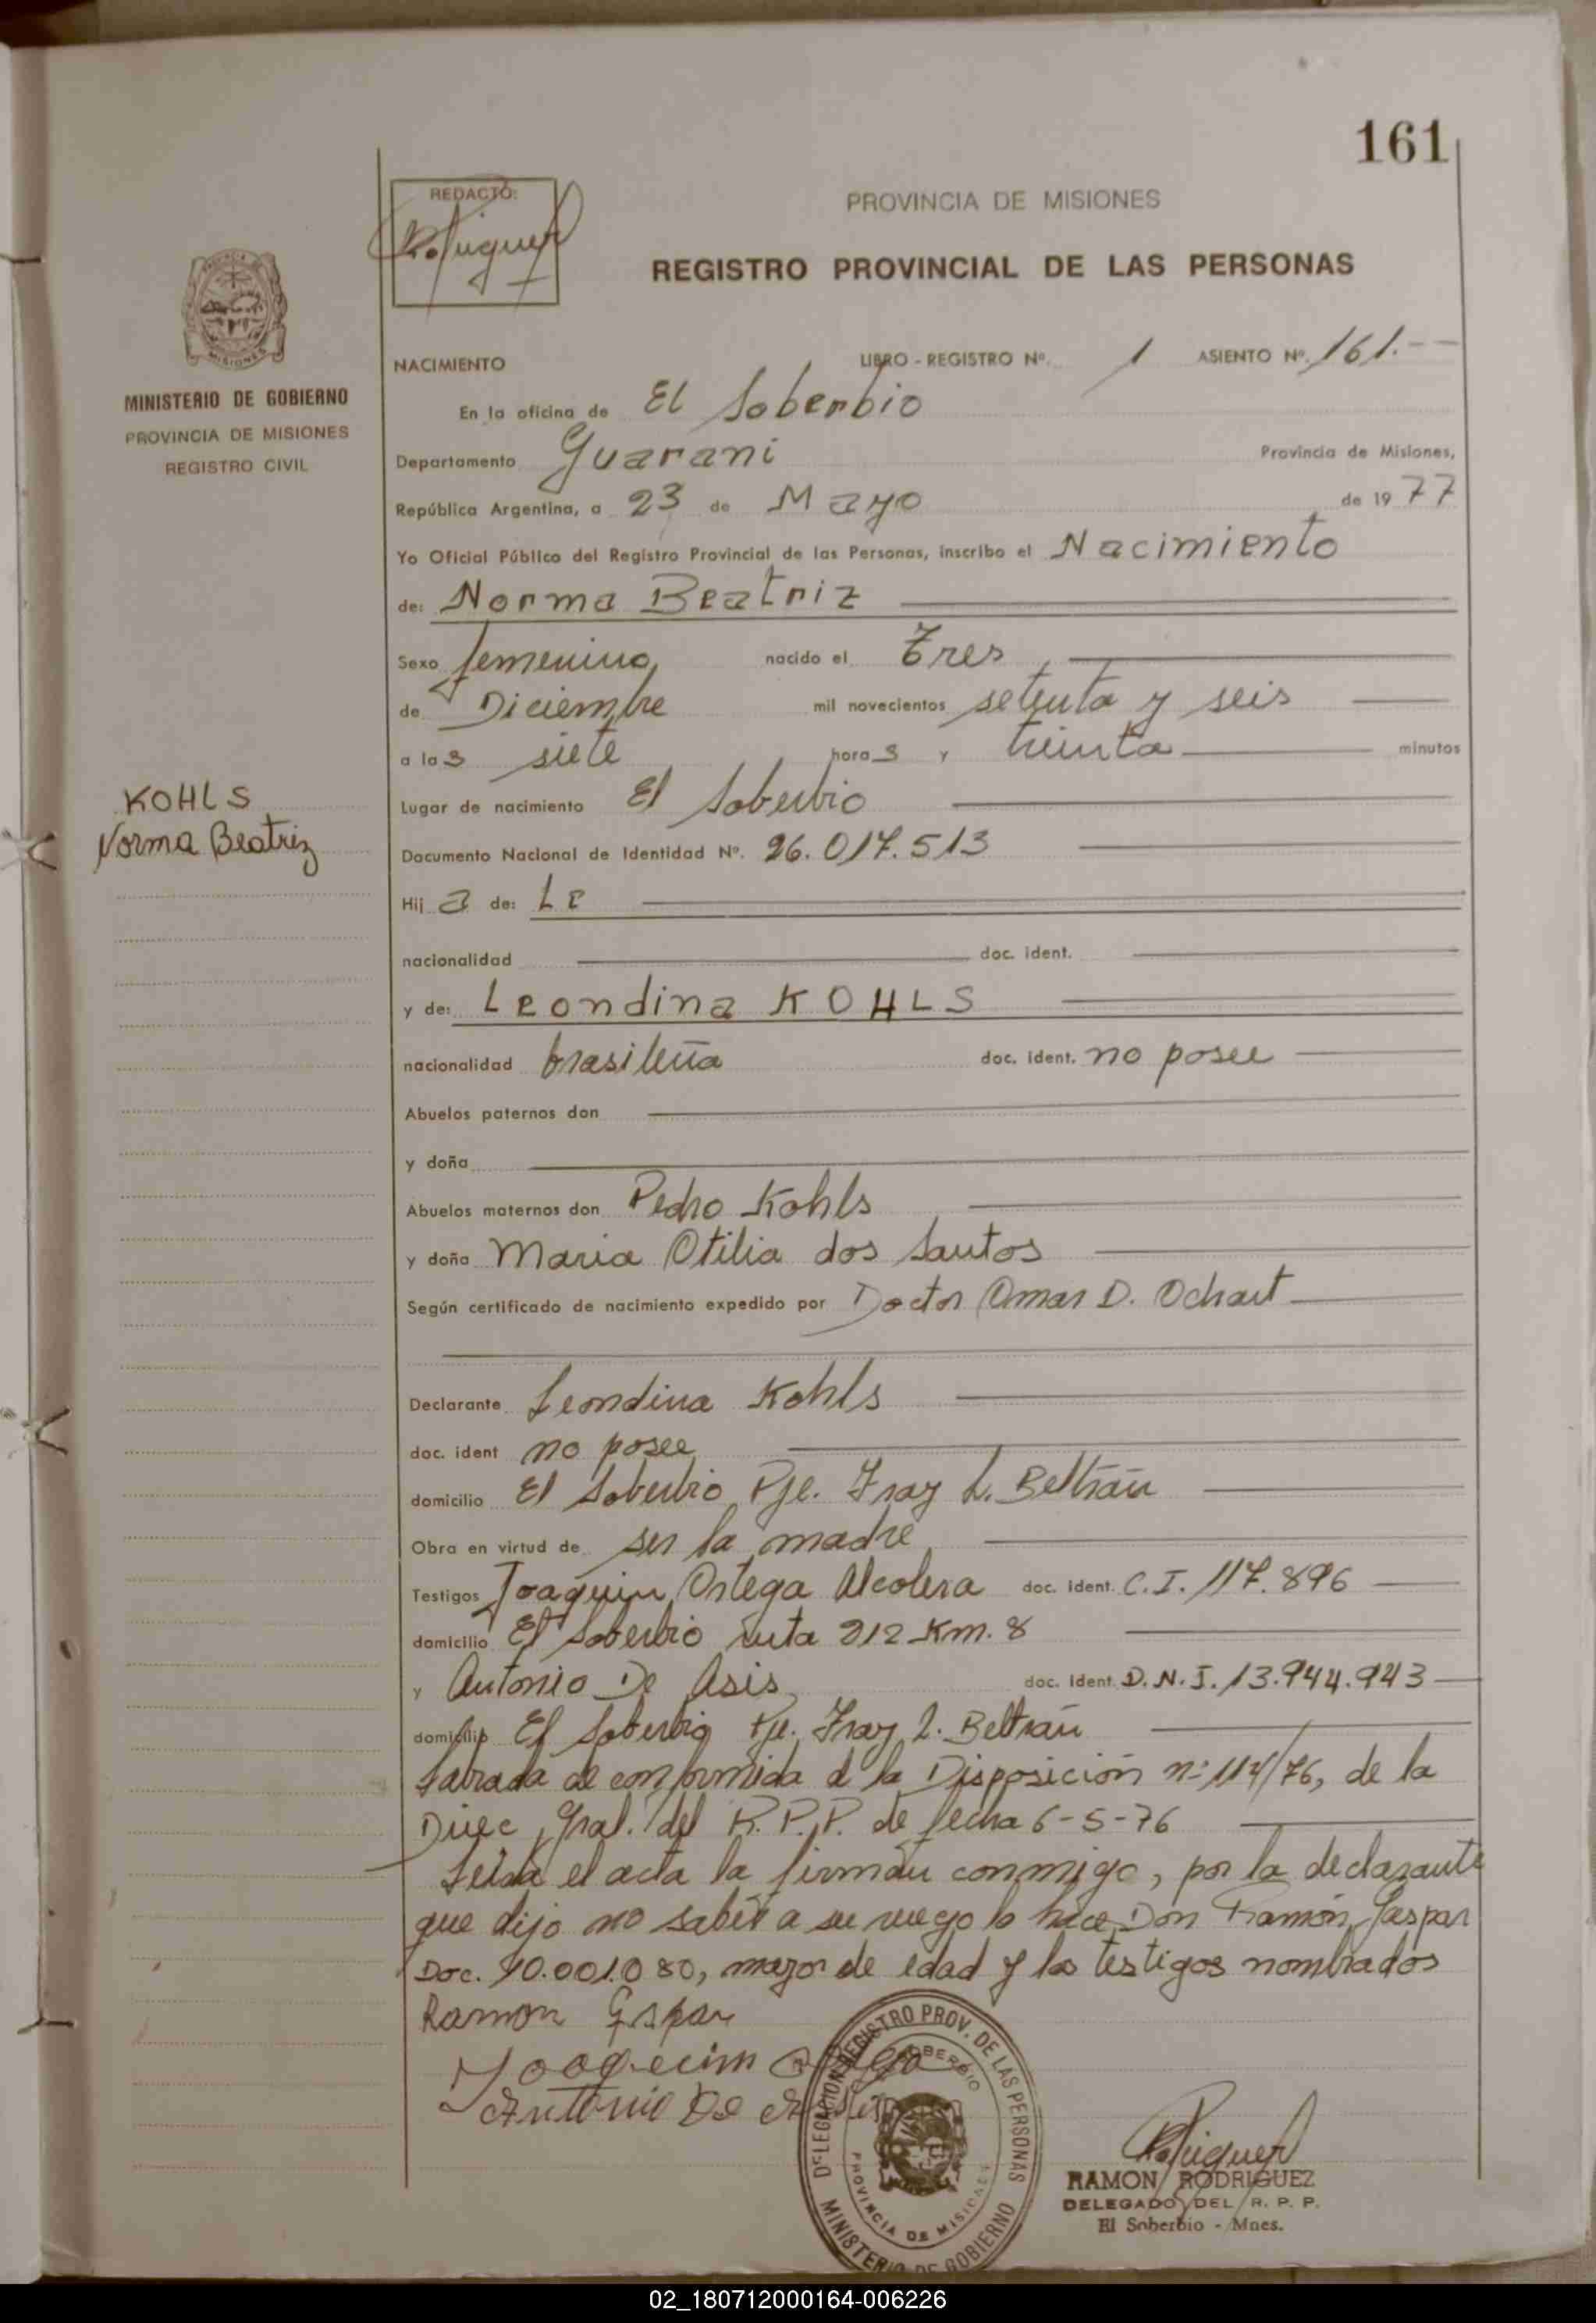 161
REDACTÓ:
PROVINCIA DE MISIONES
REGISTRO PROVINCIAL DE LAS PERSONAS
MINISTERIO DE GOBIERNO
PROVINCIA DE MISIONES
REGISTRO CIVIL
NACIMIENTO LIBRO - REGISTRO Nº. 1 ASIENTO Nº. 161.--
En la oficina de El Soberbio
Departamento Guarani Provincia de Misiones,
República Argentina, a 23 de Mayo de 19 77
Yo Oficial Público del Registro Provincial de las Personas, inscribo el Nacimiento
de: Norma Beatriz
Sexo femenino nacido el Tres
de Diciembre mil novecientos setenta y seis
a las siete horas y treinta minutos
KOHLS
Norma Beatriz
Lugar de nacimiento El Soberbio
Documento Nacional de Identidad Nº. 26.017.513
Hija de: Le
nacionalidad doc. ident.
y de: Leondina KOHLS
nacionalidad brasileña doc. ident. no posee
Abuelos paternos don
y doña
Abuelos maternos don Pedro Kohls
y doña Maria Otilia dos Santos
Según certificado de nacimiento expedido por Doctor Omar D. Ochart
Declarante Leondina Kohls
doc. ident no posee
domicilio El Soberbio Pje. Fray L. Beltrán
Obra en virtud de ser la madre
Testigos Joaquin Ortega Alcolera doc. ident. C.I. 117.896
domicilio El Soberbio ruta 212 Km. 8
y Antonio De Asis doc. ident. D.N.I. 13.944.943
domicilio El Soberbio Pje. Fray L. Beltrán
Labrada de conformida a la Disposición nº 114/76, de la
Direc. Gral. del R.P.P. de fecha 6-5-76
Leida el acta la firman conmigo, por la declarante
que dijo no saber a su ruego lo hace Don Ramón Gaspar
Doc. 10.001.080, mayor de edad y los testigos nombrados
Ramon Gspar
Joaqecim
Antonio De
DELEGACION REGISTRO PROV. DE LAS PERSONAS
SOBERBIO
PROVINCIA DE MISIONES
MINISTERIO DE GOBIERNO
RAMON RODRIGUEZ
DELEGADO DEL R. P. P.
El Soberbio - Mnes.
02_180712000164-006226